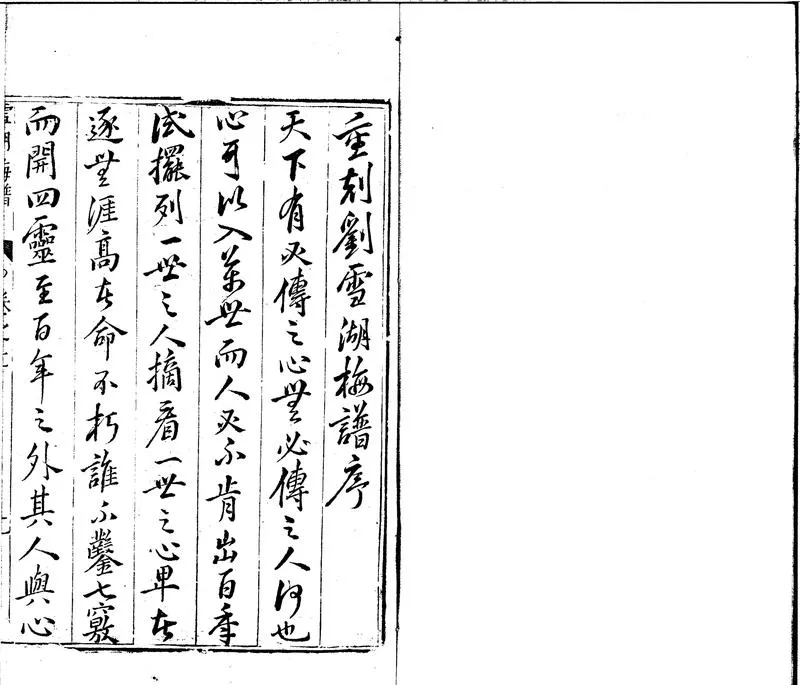 重刻劉雪湖梅譜序
天下有必傳之心無必傳之人何也
心可以入萬世而人必不肯出百年
試擺列一世之人摘看一世之心卑者
逐無涯高者命不朽誰不鑿七竅
而開四靈至百年之外其人與心
雪湖梅譜 卷之上